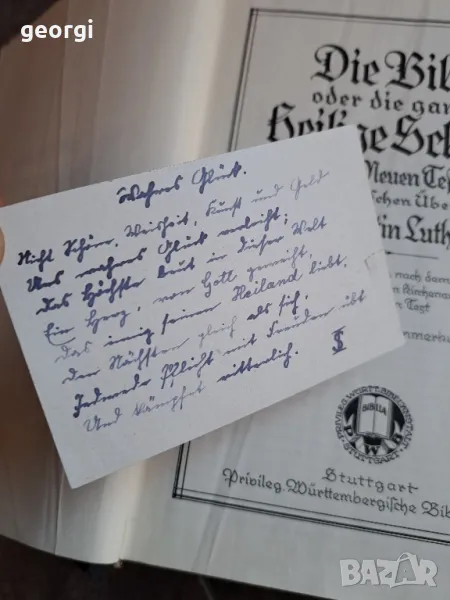 georgi
Die Bib
oder die gan
Heilige Sch
Neuen Test
schen Übe
in Luth
nach dem
n Kirchena
n Text
mmerku
Wahres Glück.
Nicht Schöne, Weisheit, Kunst und Geld
Uns wahres Glück verleiht;
Das Höchste laut in dieser Welt
Ein Herz, von Gott geweiht,
Das innig seinen Heiland liebt,
Den Nächsten gleich als sich,
Jedwede Pflicht mit Freuden übt
Und kämpfet ritterlich.
BIBLIA
P W B
Stuttgart
Privileg. Württembergische Bib
BAZAR